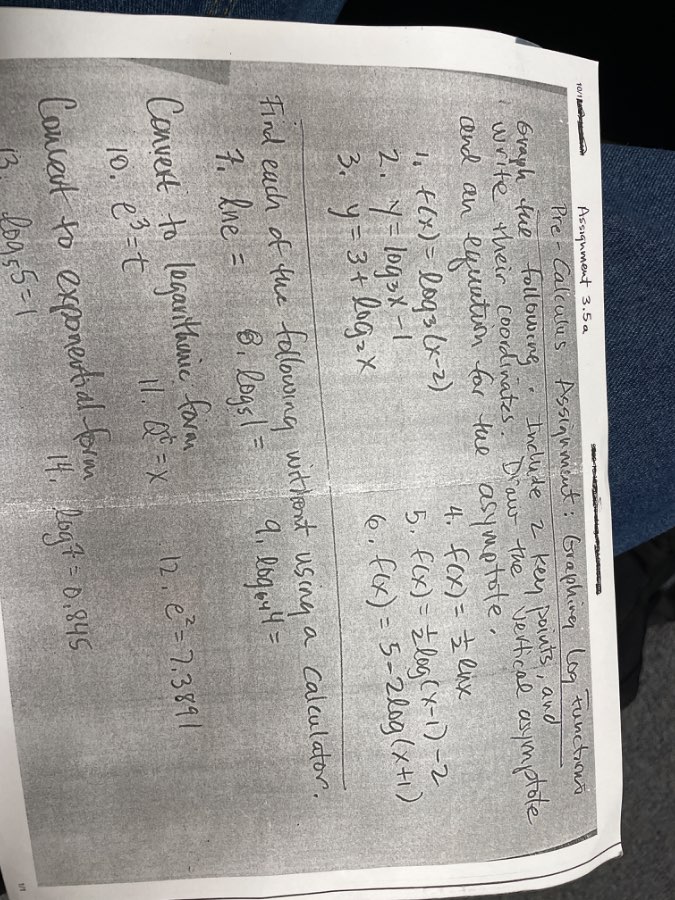 Assignment 3.5a
Pre-Calculus Assignment: Graphing Log Functions
Graph the following. Include 2 key points, and
write their coordinates. Draw the vertical asymptote
and an equation for the asymptote.
1. f(x) = log₃(x-2)
2. y = log₃x - 1
3. y = 3 + log₂x
4. f(x) = ½ lnx
5. f(x) = ½log(x-1) -2
6. f(x) = 5-2log(x+1)
Find each of the following without using a calculator.
7. lne = 8. log₅1 = 9. log₆₄4 =
Convert to logarithmic form
10. e³=t 11. Qᵗ=x 12. e²=7.3891
Convert to exponential form
13. log₅5=1 14. log7=0.845
1/1